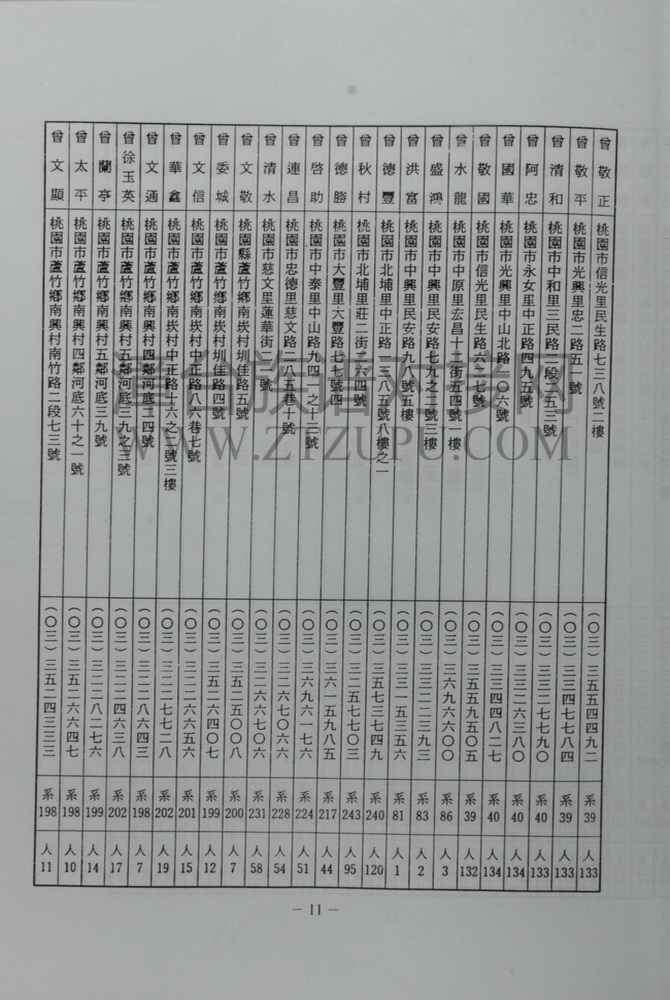 曾敬正 桃園市信光里民生路七三八號二樓 (〇三)三五五四四九二 系39 人133
曾敬平 桃園市光興里忠二路五一號 (〇三)三三四七七八四 系39 人133
曾清和 桃園市中和里三民路一段二五三號 (〇三)三三二七七九〇 系40 人133
曾阿忠 桃園市永女里中正路四九五號 (〇三)三三二六三八〇 系40 人134
曾國華 桃園市光興里中山北路一〇六號 (〇三)三三四四八二七 系40 人134
曾敬國 桃園市信光里民生路六六七號 (〇三)三五五九五〇五 系39 人132
曾水龍 桃園市中原里宏昌十二街五四號一樓 (〇三)三六九六六〇〇 系86 人3
曾盛鴻 桃園市中興里民安路七九之二號三樓 (〇三)三三一二三九三 系83 人2
曾洪富 桃園市中興里民安路九八號五樓 (〇三)三三一五三五六 系81 人1
曾德豐 桃園市北埔里中正路一三八五號八樓之一 (〇三)三五七三七四九 系240 人120
曾秋村 桃園市北埔里莊二街六六四號 (〇三)三二五七七〇三 系243 人95
曾德勝 桃園市大豐里大豐路七七號四 (〇三)三六一五九八五 系217 人44
曾啓助 桃園市中泰里中山路九四一之十三號 (〇三)三六九六一七六 系224 人51
曾連昌 桃園市忠德里慈文路一八五巷十號 (〇三)三二六七〇六六 系228 人54
曾清水 桃園市慈文里蓮華街一號 (〇三)三二六六七〇六 系231 人58
曾文敬 桃園縣蘆竹鄉南崁村圳佳路五號 (〇三)三五二五〇〇八 系200 人7
曾委城 桃園市蘆竹鄉南崁村圳佳路四號 (〇三)三五二六四〇七 系199 人12
曾文信 桃園市蘆竹鄉南崁村中正路八六巷七號 (〇三)三二二六六五六 系201 人15
曾華鑫 桃園市蘆竹鄉南崁村中正路十六之一號三樓 (〇三)三二二七七二八 系202 人19
曾文通 桃園市蘆竹鄉南興村四鄰河底二四號 (〇三)三二二八六四三 系198 人7
曾徐玉英 桃園市蘆竹鄉南興村五鄰河底三九之三號 (〇三)三二二四六三八 系202 人17
曾蘭亭 桃園市蘆竹鄉南興村五鄰河底三九號 (〇三)三二二八二七六 系199 人14
曾太平 桃園市蘆竹鄉南興村四鄰河底六十之一號 (〇三)三五二六六四七 系198 人10
曾文顯 桃園市蘆竹鄉南興村南竹路二段七三號 (〇三)三五二四三三三 系198 人11
— 11 —
WWW.ZTZUPU.COM